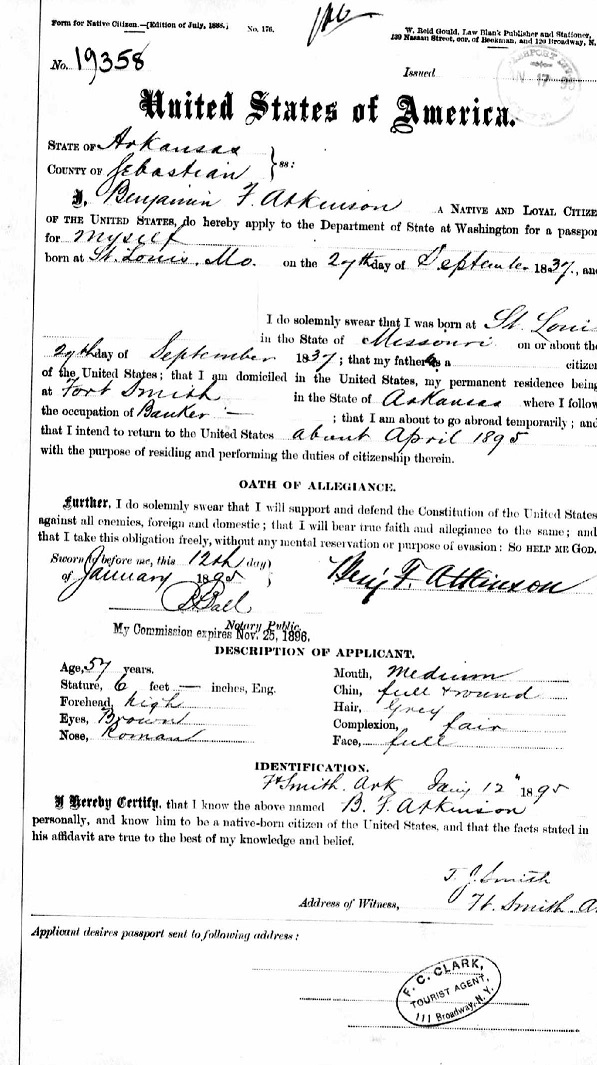 Form for Native Citizen.—(Edition of July, 1888.) No. 176.
W. Reid Gould, Law Blank Publisher and Stationer,
139 Nassau Street, cor. of Beekman, and 120 Broadway, N.
No. 19358
Issued
17
United States of America.
STATE OF Arkansas
COUNTY OF Sebastian } ss:
I, Benjamin F. Atkinson, A NATIVE AND LOYAL CITIZE
OF THE UNITED STATES, do hereby apply to the Department of State at Washington for a passpor
for myself
born at St. Louis, Mo. on the 29th day of September 1837, and
I do solemnly swear that I was born at St. Loui
in the State of Missouri on or about the
29th day of September 1837; that my father is a citizen
of the United States; that I am domiciled in the United States, my permanent residence being
at Fort Smith in the State of Arkansas where I follow
the occupation of Banker —; that I am about to go abroad temporarily; and
that I intend to return to the United States about April 1895
with the purpose of residing and performing the duties of citizenship therein.
OATH OF ALLEGIANCE.
Further, I do solemnly swear that I will support and defend the Constitution of the United States
against all enemies, foreign and domestic; that I will bear true faith and allegiance to the same; and
that I take this obligation freely, without any mental reservation or purpose of evasion: SO HELP ME GOD.
Sworn to before me, this 12th day
of January 1895;
Benj F. Atkinson
Ball
Notary Public.
My Commission expires Nov. 25, 1896.
DESCRIPTION OF APPLICANT.
Age, 57 years. Mouth, Medium
Stature, 6 feet — inches, Eng. Chin, full & round
Forehead, high Hair, Grey
Eyes, Brown Complexion, fair
Nose, Roman Face, full
IDENTIFICATION.
Ft Smith, Ark Jany 12" 1895
I Hereby Certify, that I know the above named B. F. Atkinson
personally, and know him to be a native-born citizen of the United States, and that the facts stated in
his affidavit are true to the best of my knowledge and belief.
T. J. Smith
Address of Witness, Ft. Smith A
Applicant desires passport sent to following address:
F. C. CLARK,
TOURIST AGENT,
111 Broadway, N.Y.